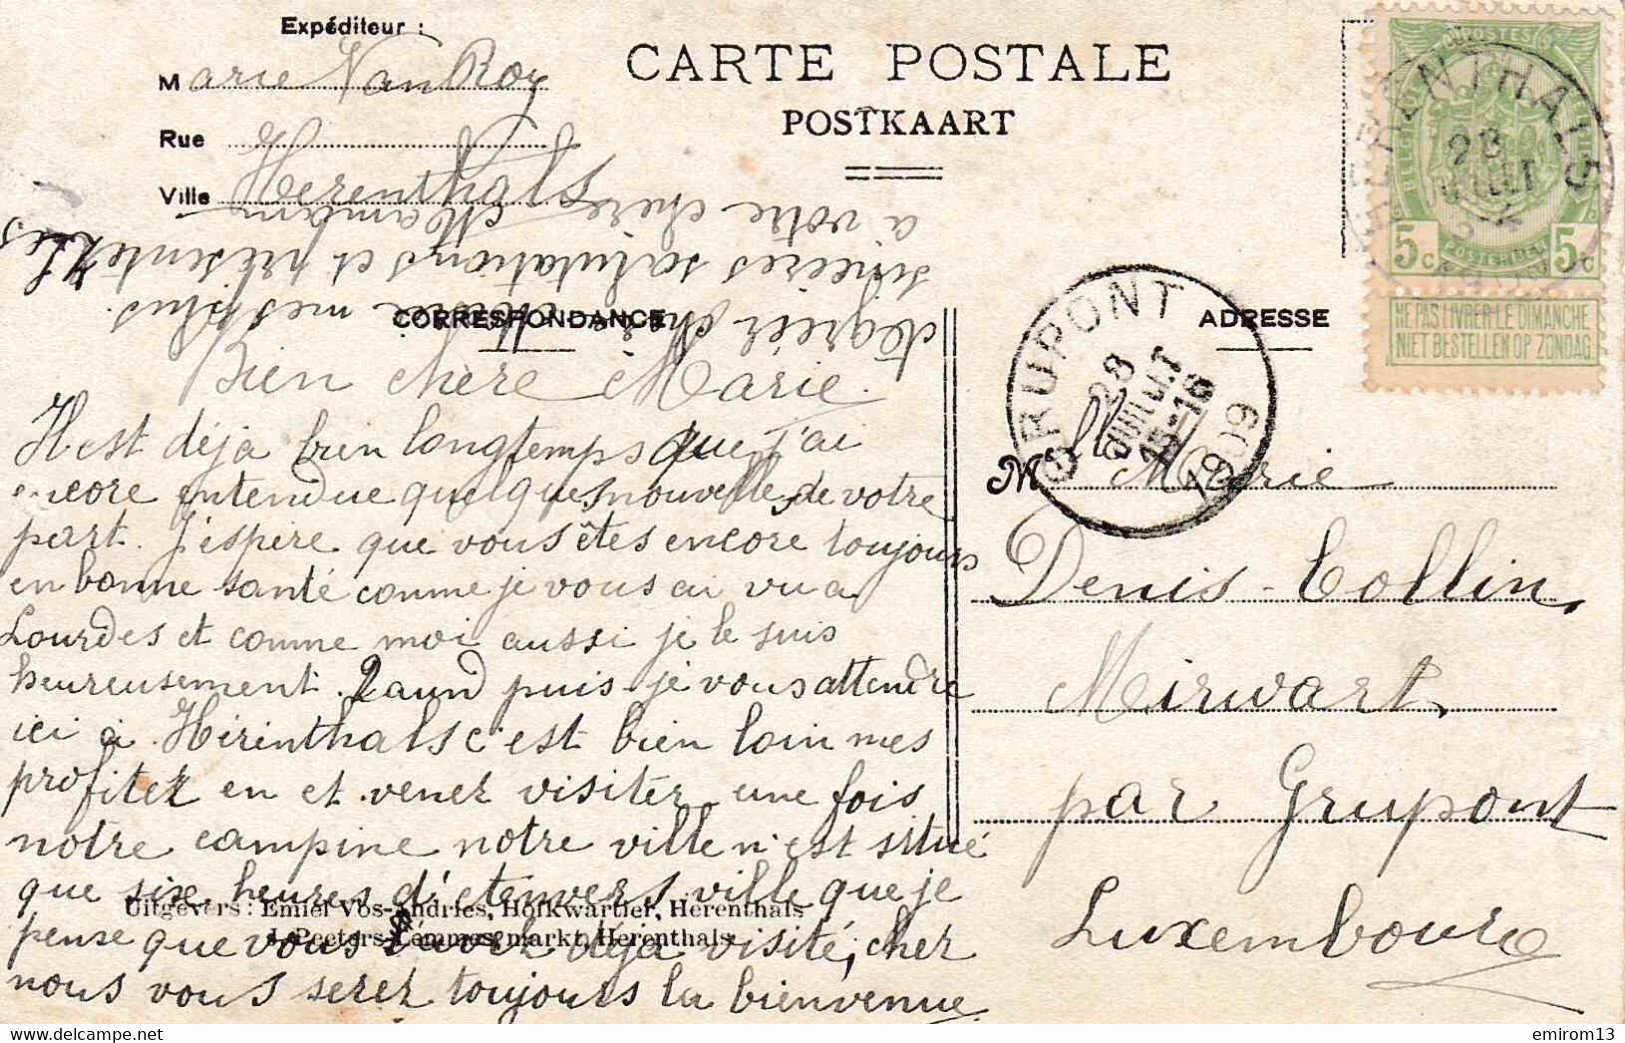 Expéditeur :
Marie Van Roy
Rue
Ville Herenthals
CARTE POSTALE
POSTKAART
HERENTHALS
28
JUILLET
BELGIE
POSTERIJEN
5c 5c
NE PAS LIVRER LE DIMANCHE
NIET BESTELLEN OP ZONDAG
GRUPONT
28
JUILLET
15-16
1909
CORRESPONDANCE
ADRESSE
Bien chère Marie.
Il est déja bien longtemps que j'ai
encore entendue quelques nouvelle de votre
part. J'espère que vous êtes encore toujours
en bonne santé comme je vous ai vu a
Lourdes et comme moi aussi je le suis
heureusement. Quand puis-je vous attendre
ici à Hérenthals c'est bien loin mes
profitez en et venez visiter une fois
notre campine notre ville n'est situé
que six heures d'etenvers ville que je
pense que vous l'avez déja visité, cher
nous vous serez toujours la bienvenue.
Agréer chère Marie mes plus
sincères salutations et présentez les
a votre chère Maman
Uitgevers: Emiel Vos-Andries, Hofkwartier, Herenthals
J. Peeters-Lemmes, markt, Herenthals
Mlle Marie
Denis-Collin,
Mirwart,
par Grupont
Luxembourg
delcampe.net
emirom13